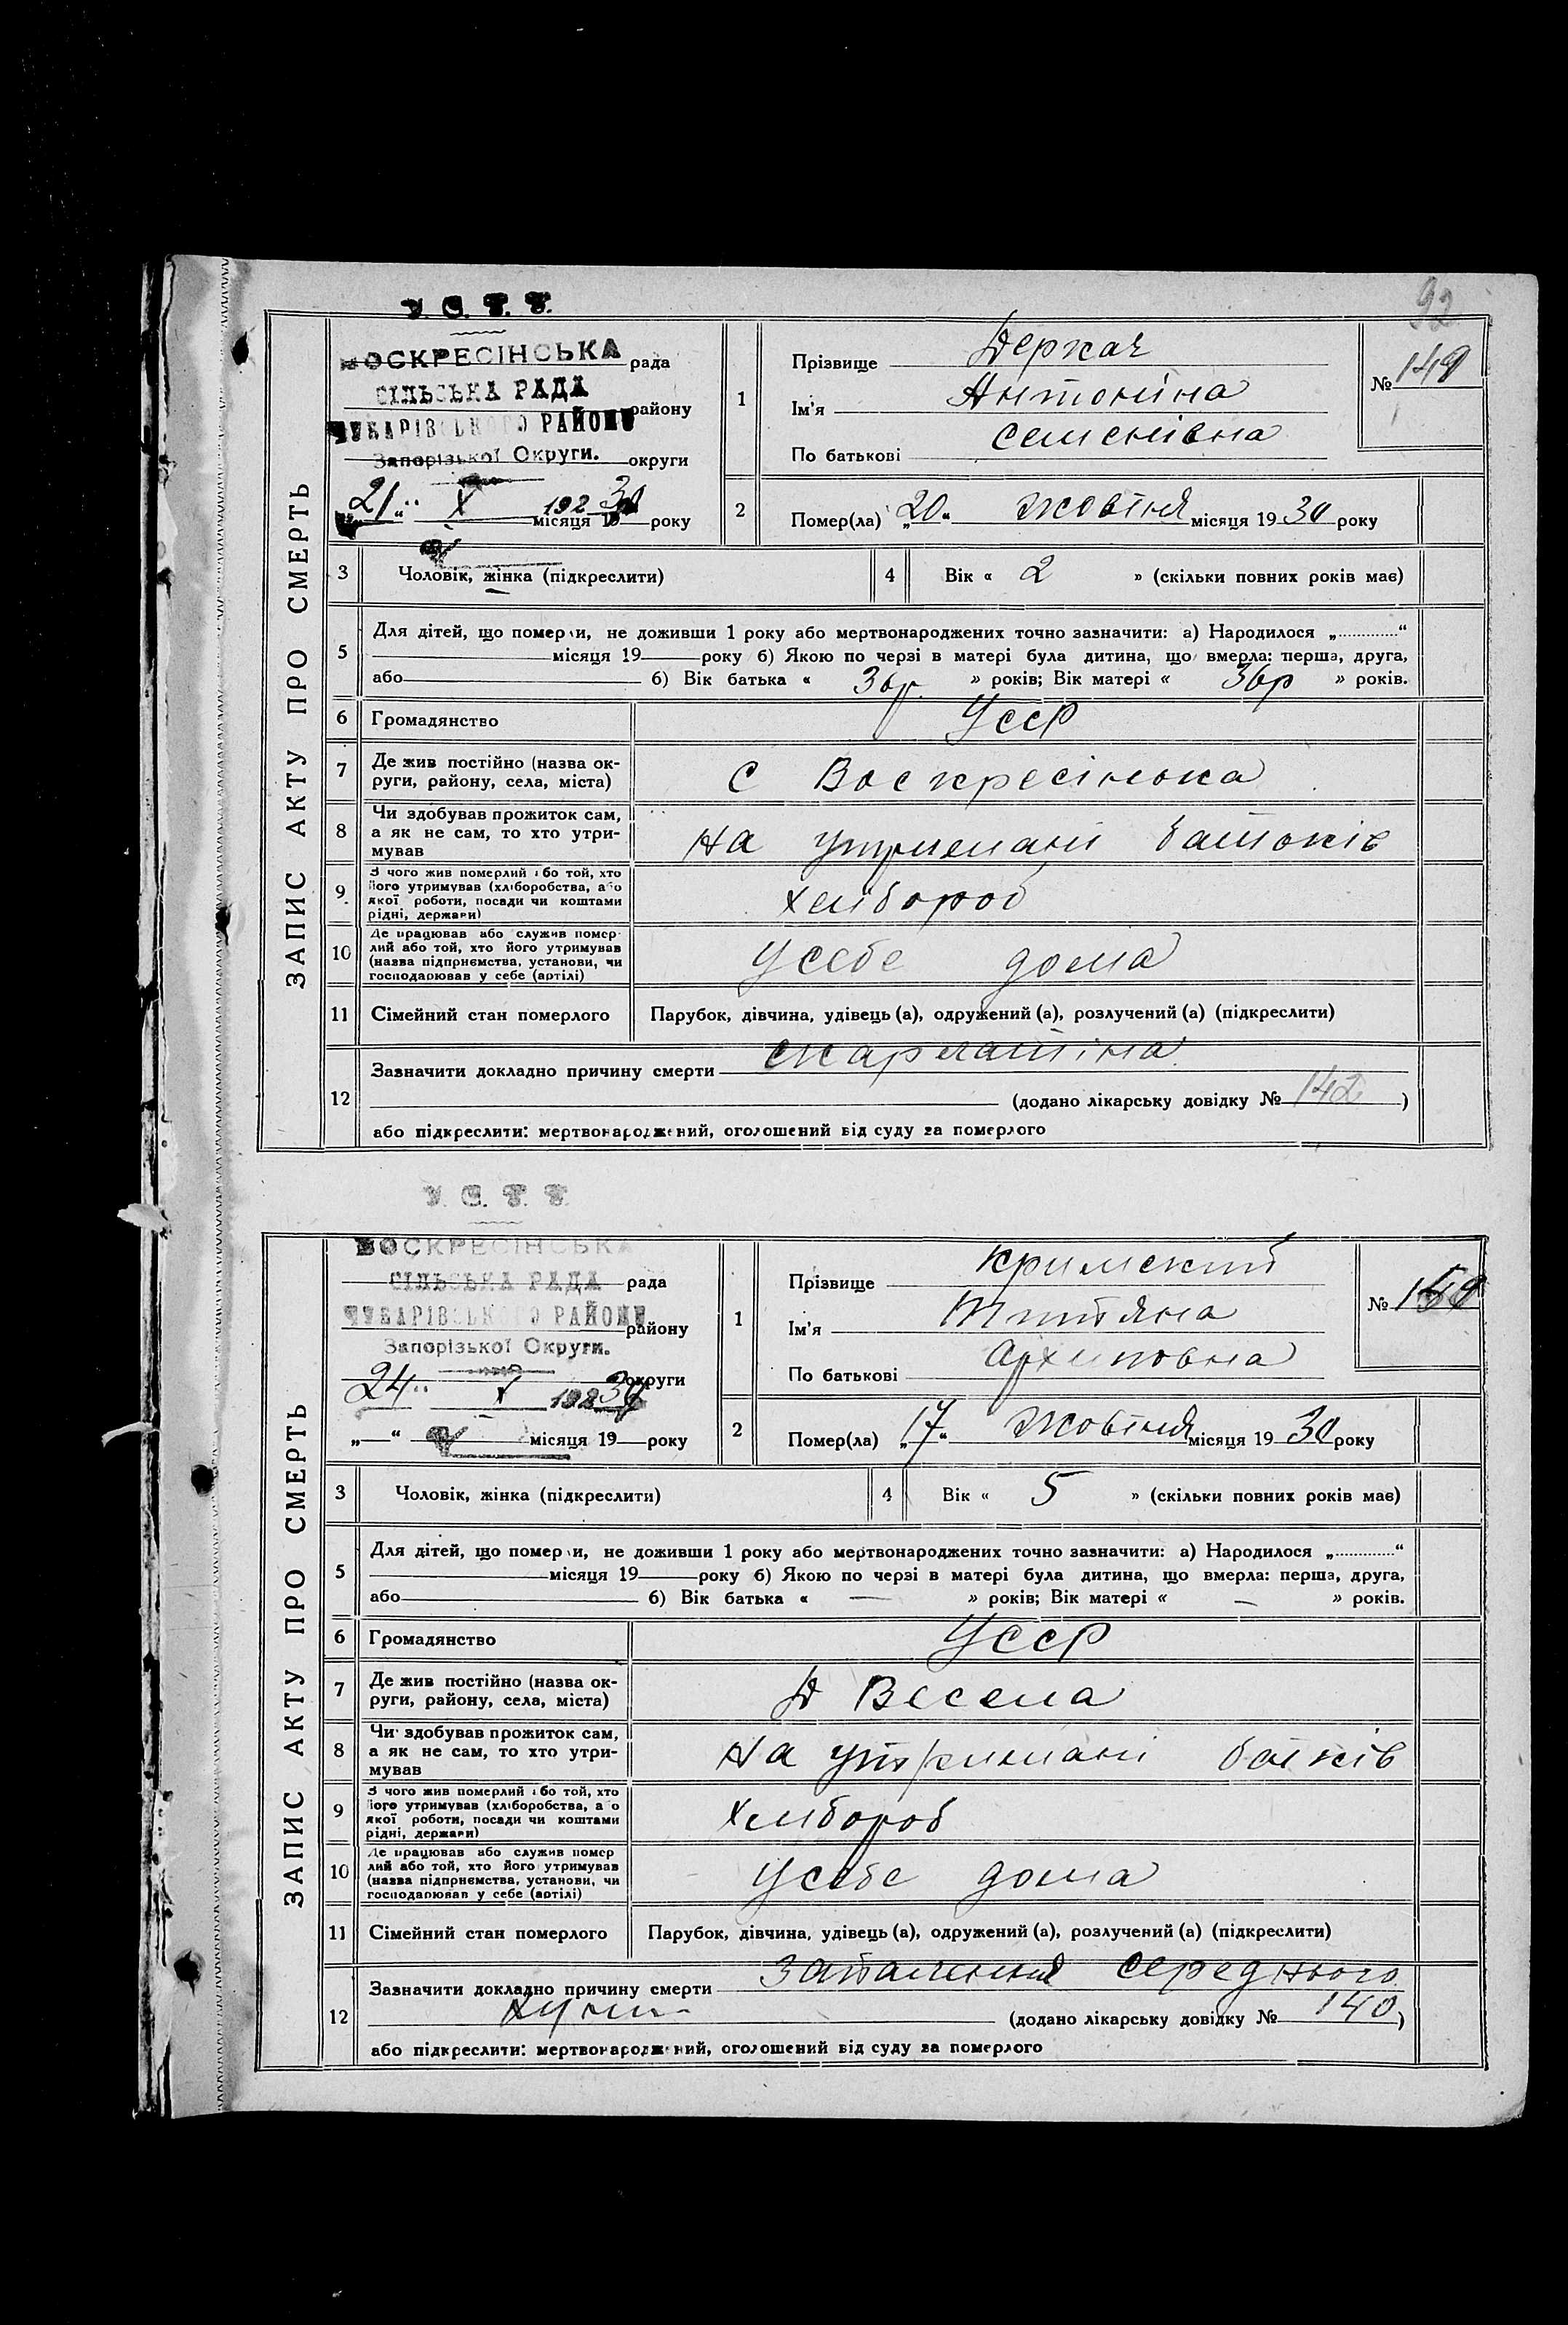 92
У. С. Р. Р.
ВОСКРЕСІНСЬКА рада
СІЛЬСЬКА РАДА
ЧУБАРІВСЬКОГО РАЙОНУ району
Запорізької Округи. округи
21 X 1930
місяця 19 року
ЗАПИС АКТУ ПРО СМЕРТЬ
1 Прізвище Деркач
Ім'я Антоніна
По батькові Семенівна
№ 149
2 Помер(ла) „20“ Жовтня місяця 1930 року
3 Чоловік, жінка (підкреслити)
4 Вік « 2 » (скільки повних років має)
5 Для дітей, що померли, не доживши 1 року або мертвонароджених точно зазначити: а) Народилося „..............“
місяця 19 року б) Якою по черзі в матері була дитина, що вмерла: перша, друга,
або б) Вік батька « 36р. » років; Вік матері « 36р » років.
6 Громадянство УССР
7 Де жив постійно (назва ок-
руги, району, села, міста) С Воскресінька
8 Чи здобував прожиток сам,
а як не сам, то хто утри-
мував на утримані батьків
9. З чого жив померлий або той, хто
його утримував (хліборобства, або
якої роботи, посади чи коштами
рідні, держави) Хлібороб
10 Де працював або служив помер-
лий або той, хто його утримував
(назва підприємства, установи, чи
господарював у себе (артілі) У себе дома
11 Сімейний стан померлого Парубок, дівчина, удівець (а), одружений (а), розлучений (а) (підкреслити)
12 Зазначити докладно причину смерти скарлатіна
(додано лікарську довідку № 142 )
або підкреслити: мертвонароджений, оголошений від суду за померлого
У. С. Р. Р.
ВОСКРЕСІНСЬКА
СІЛЬСЬКА РАДА рада
ЧУБАРІВСЬКОГО РАЙОНУ району
Запорізької Округи.
округи
24 X 1930
„ “ місяця 19 року
ЗАПИС АКТУ ПРО СМЕРТЬ
1 Прізвище Кримский
Ім'я Титяна
По батькові Архиповна
№ 150
2 Помер(ла) „17“ Жовтня місяця 1930 року
3 Чоловік, жінка (підкреслити)
4 Вік « 5 » (скільки повних років має)
5 Для дітей, що померли, не доживши 1 року або мертвонароджених точно зазначити: а) Народилося „..............“
місяця 19 року б) Якою по черзі в матері була дитина, що вмерла: перша, друга,
або б) Вік батька « — » років; Вік матері « — » років.
6 Громадянство УССР
7 Де жив постійно (назва ок-
руги, району, села, міста) Д Весела
8 Чи здобував прожиток сам,
а як не сам, то хто утри-
мував на утримані батьків
9 З чого жив померлий або той, хто
його утримував (хліборобства, або
якої роботи, посади чи коштами
рідні, держави) Хлібороб
10 Де працював або служив помер
лий або той, хто його утримував
(назва підприємства, установи, чи
господарював у себе (артілі) У себе дома
11 Сімейний стан померлого Парубок, дівчина, удівець (а), одружений (а), розлучений (а) (підкреслити)
12 Зазначити докладно причину смерти Запалення середнього
(додано лікарську довідку № 140 )
або підкреслити: мертвонароджений, оголошений від суду за померлого